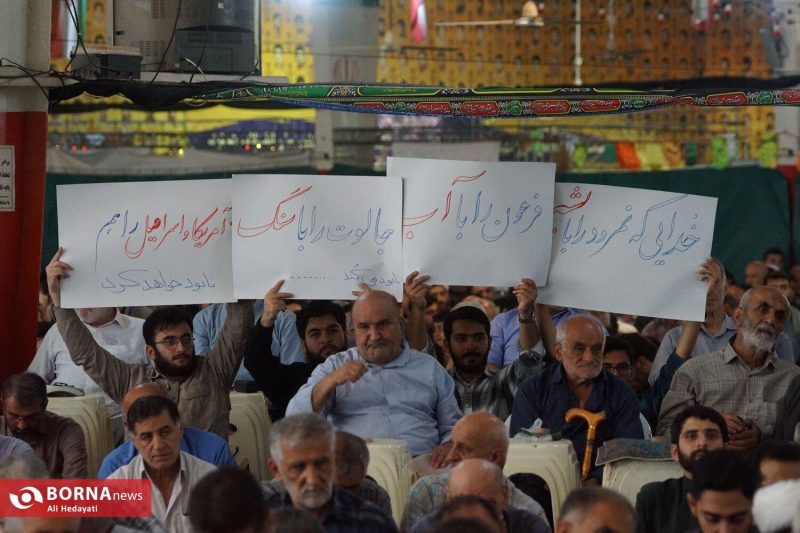 خدایی که نمرود را با پشه
فرعون را با آب
جالوت را با سنگ
نابود می‌کند ..........
آمریکا و اسرائیل را هم
نابود خواهد کرد
BORNA news
Ali Hedayati
BORNA
Ali Hedayati